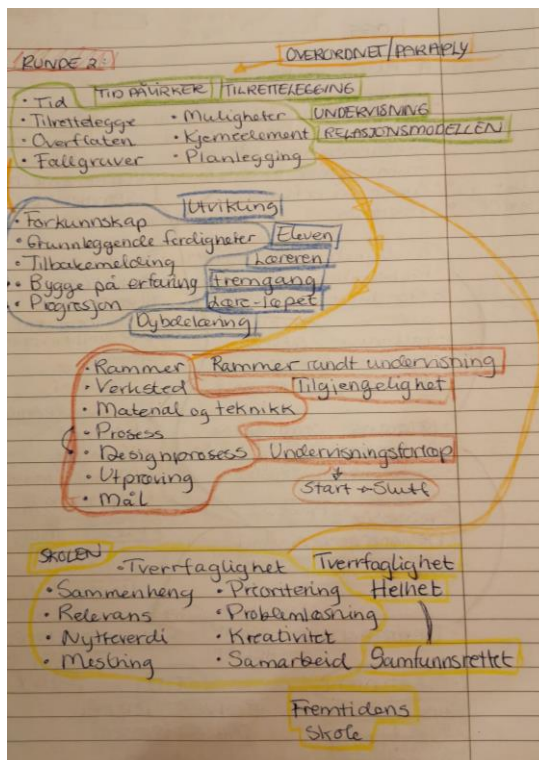 RUNDE 2:
OVERORDNET/PARAPLY
TID PÅVIRKER
TILRETTELEGGING
• Tid
• Tilrettelegge
• Overflaten
• Fallgruver
• Muligheter
• Kjerneelement
• Planlegging
UNDERVISNING
RELASJONSMODELLEN
Utvikling
• Forkunnskap
• Grunnleggende ferdigheter
• Tilbakemelding
• Bygge på erfaring
• Progresjon
Eleven
Læreren
Fremgang
Lære-løpet
Dybdelæring
• Rammer
• Verksted
• Material og teknikk
• Prosess
• Designprosess
• Utprøving
• Mål
Rammer rundt undervisning
Tilgjengelighet
Undervisningsforløp
Start → Slutt
SKOLEN
• Tverrfaglighet
• Sammenheng
• Relevans
• Nytteverdi
• Mestring
• Prioritering
• Problemløsning
• Kreativitet
• Samarbeid
Tverrfaglighet
Helhet
Samfunnsrettet
Fremtidens
Skole